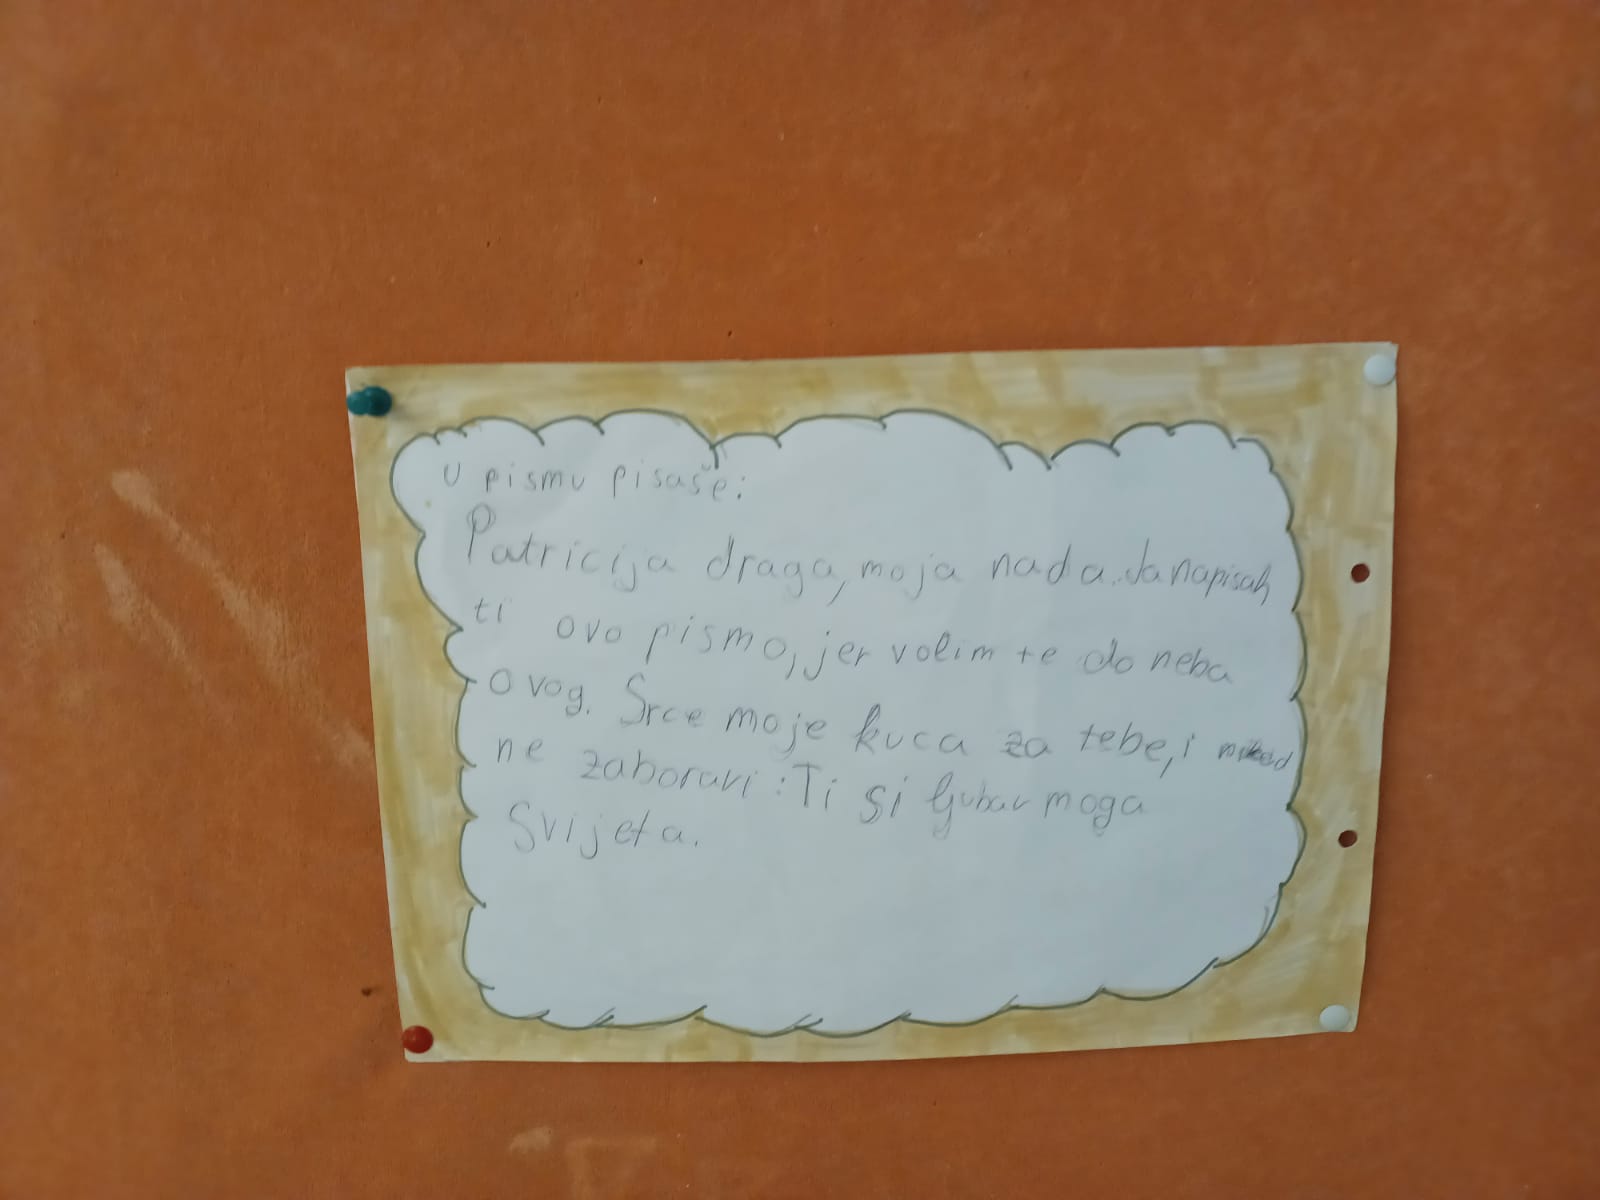 U pismu pisaše:
Patricija draga, moja nada. Ja napisah
ti ovo pismo, jer volim te do neba
ovog. Srce moje kuca za tebe, i nikad
ne zaboravi: Ti si ljubav moga
Svijeta.